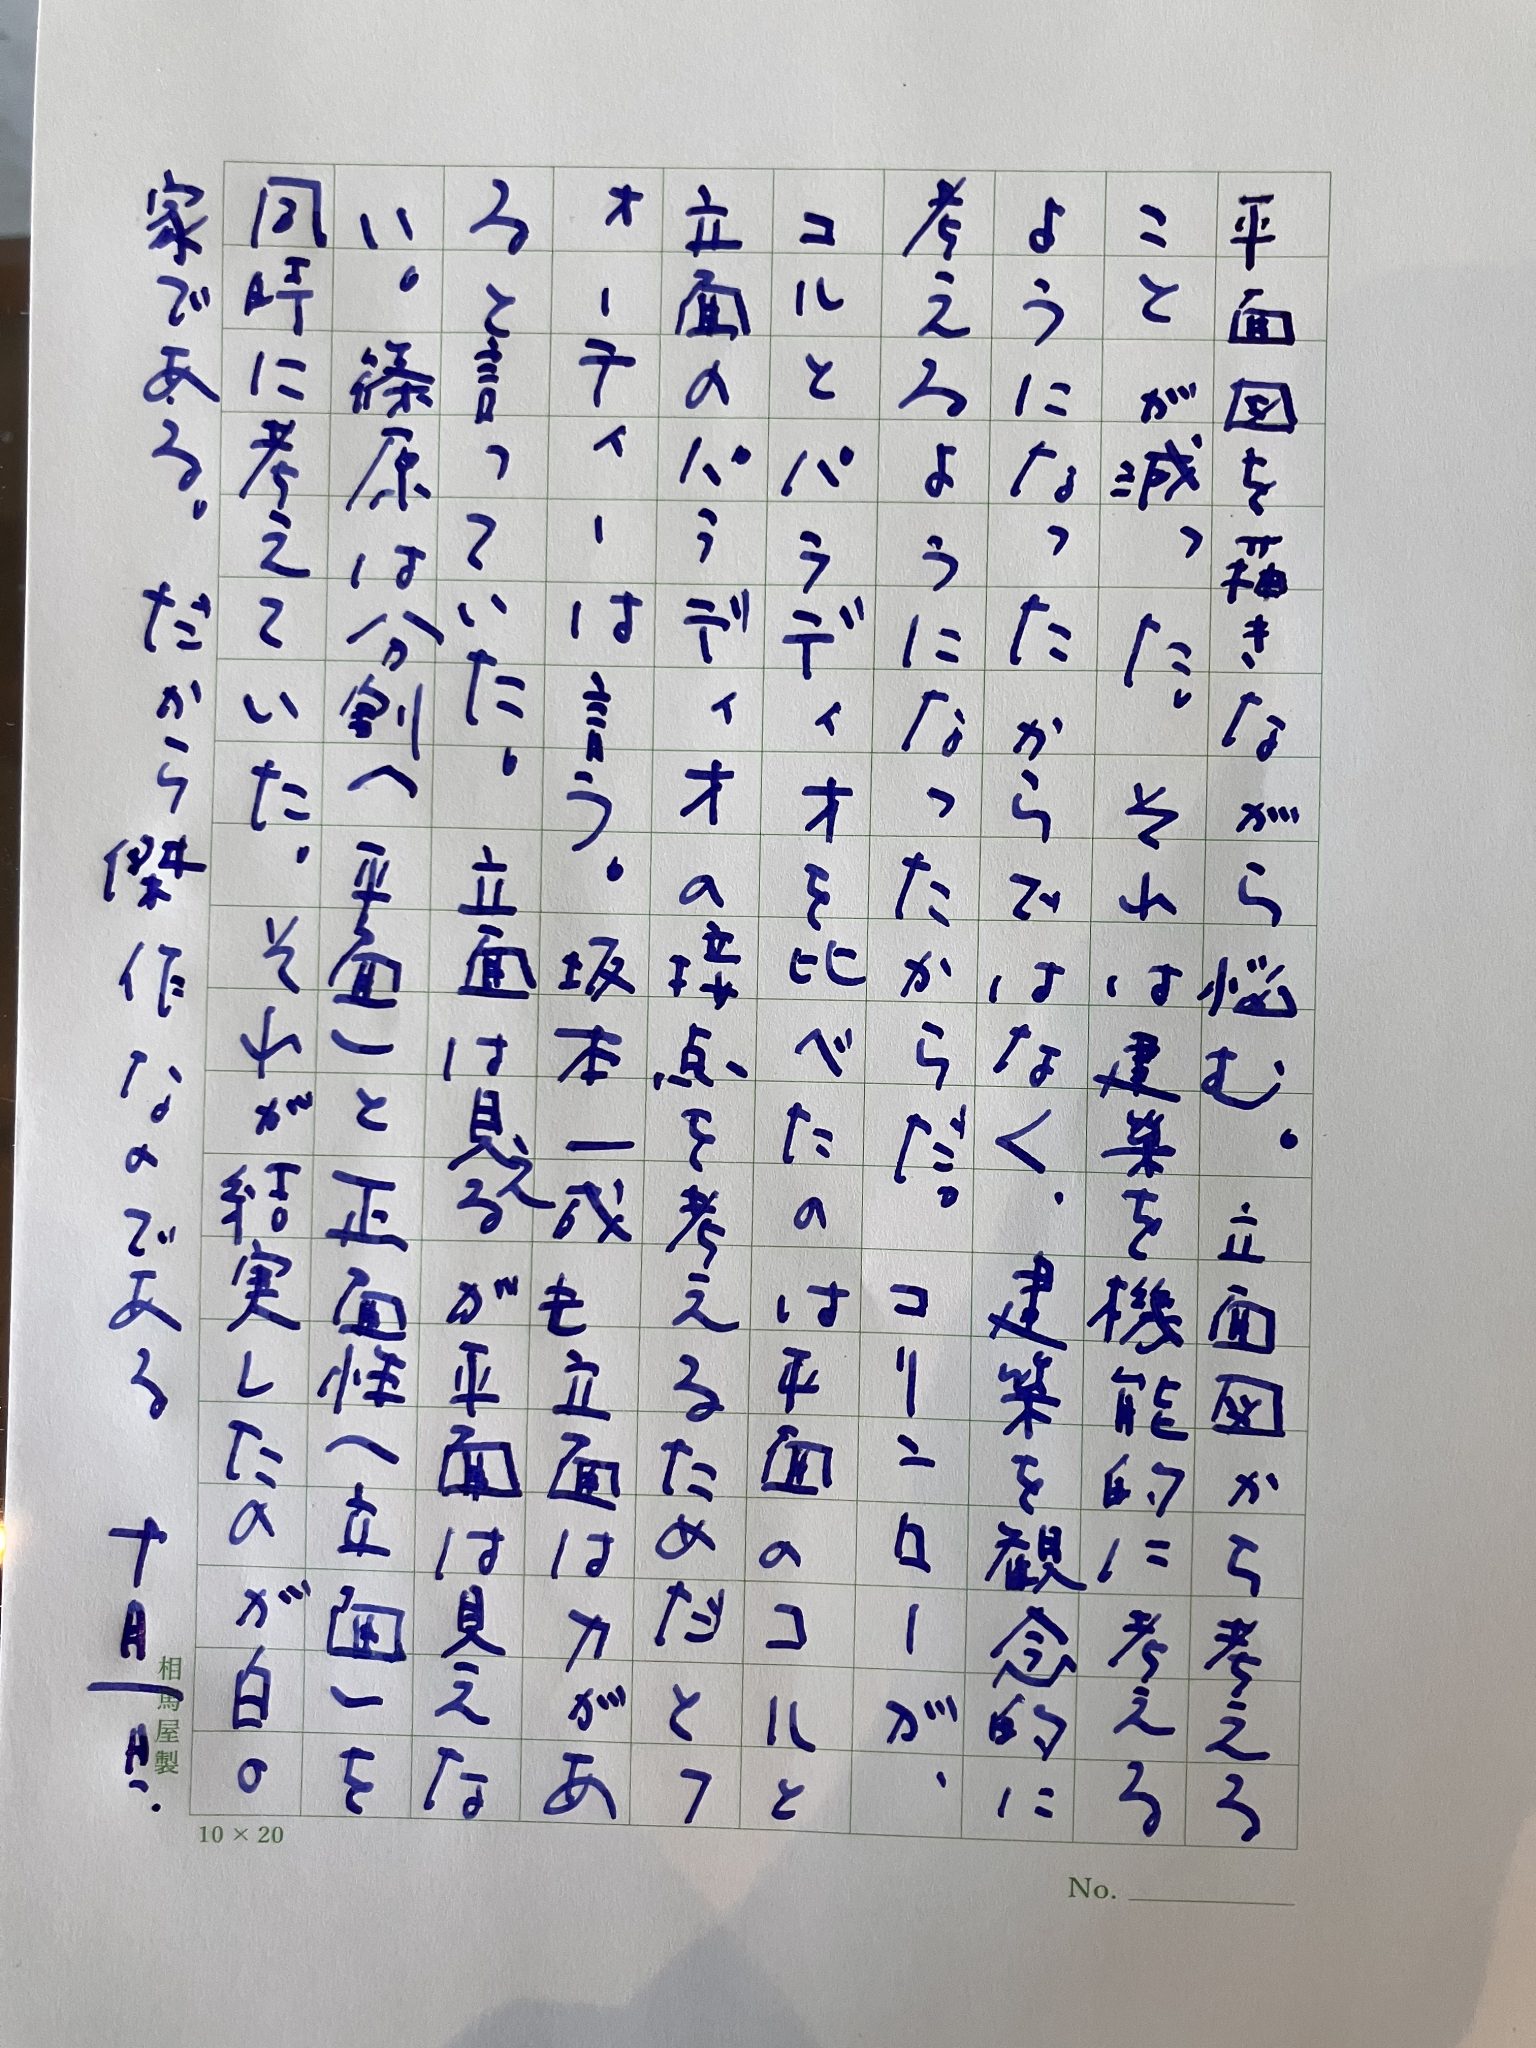 平面図を描きながら悩む。立面図から考える
ことが減った。それは建築を機能的に考える
ようになったからではなく、建築を観念的に
考えるようになったからだ。コリニローが、
コルとパラディオを比べたのは平面のコルと
立面のパラディオの接点を考えるためだとフ
ォーティーは言う。坂本一成も立面は力があ
ると言っていた。立面は見えるが平面は見えな
い。篠原は分割へ平面一と正面性へ立面一を
同時に考えていた。それが結実したのが白の
家である。だから傑作なのである 十月一日.
相馬屋製
10×20
No.